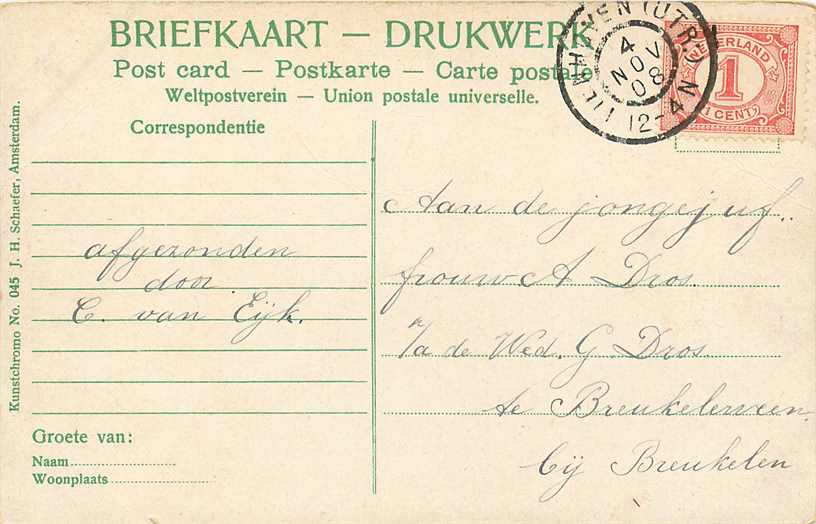 BRIEFKAART — DRUKWERK
Post card — Postkarte — Carte postale
Weltpostverein — Union postale universelle.
Correspondentie
(UTR.)
4 NOV 08
12-4 N
NEDERLAND
1
1 CENT
afgezonden
door
C. van Eijk.
Aan de jongejuf..
frouw A Dros.
p/a de Wed. G. Dros
te Breukelerveen
bij Breukelen
Groete van:
Naam
Woonplaats
Kunstchromo No. 045 J. H. Schaefer, Amsterdam.